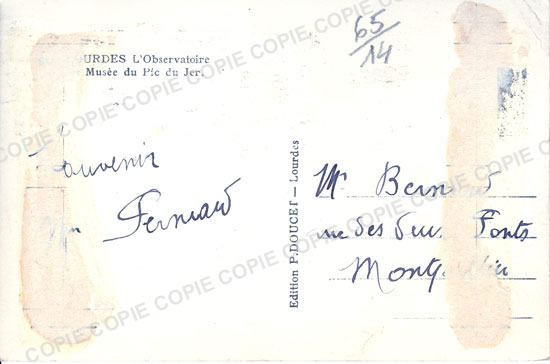 65/14
URDES L'Observatoire
Musée du Pic du Jer.
Souvenir
Fernand
Edition P. DOUCET — Lourdes
Mr Bern
rue des deux Ponts
Mont
COPIE COPIE COPIE COPIE COPIE COPIE